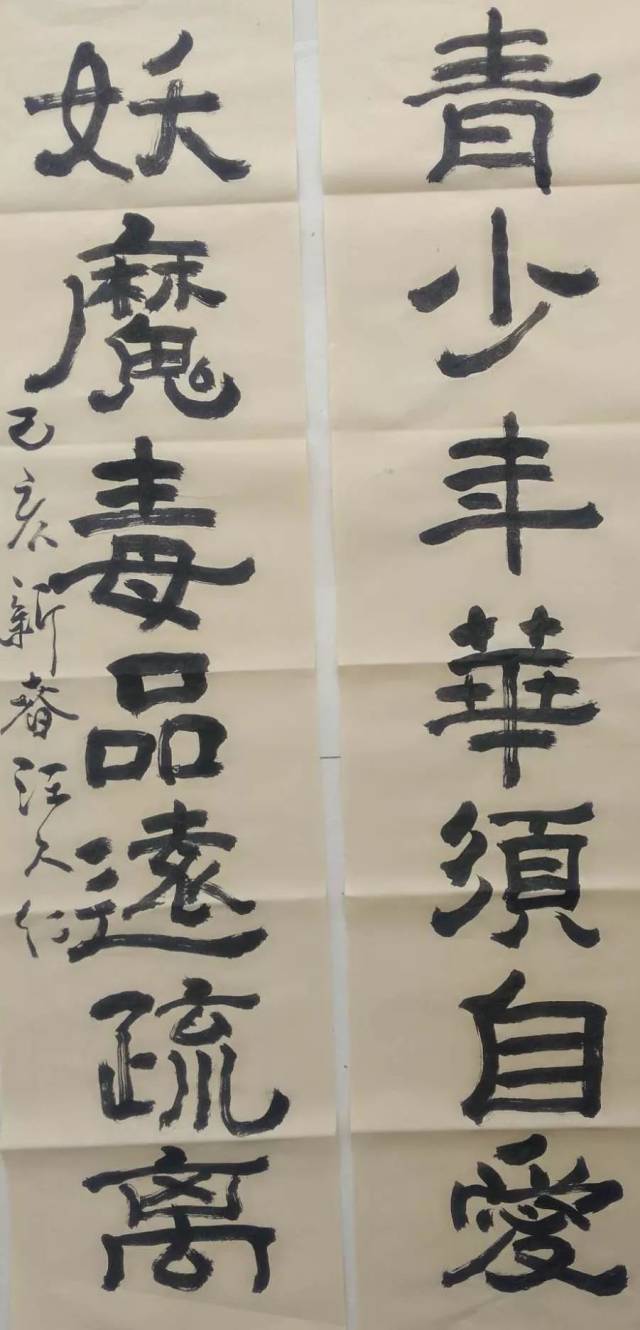 青少年華須自愛
妖魔毒品遠疏离
己亥新春汪人仁